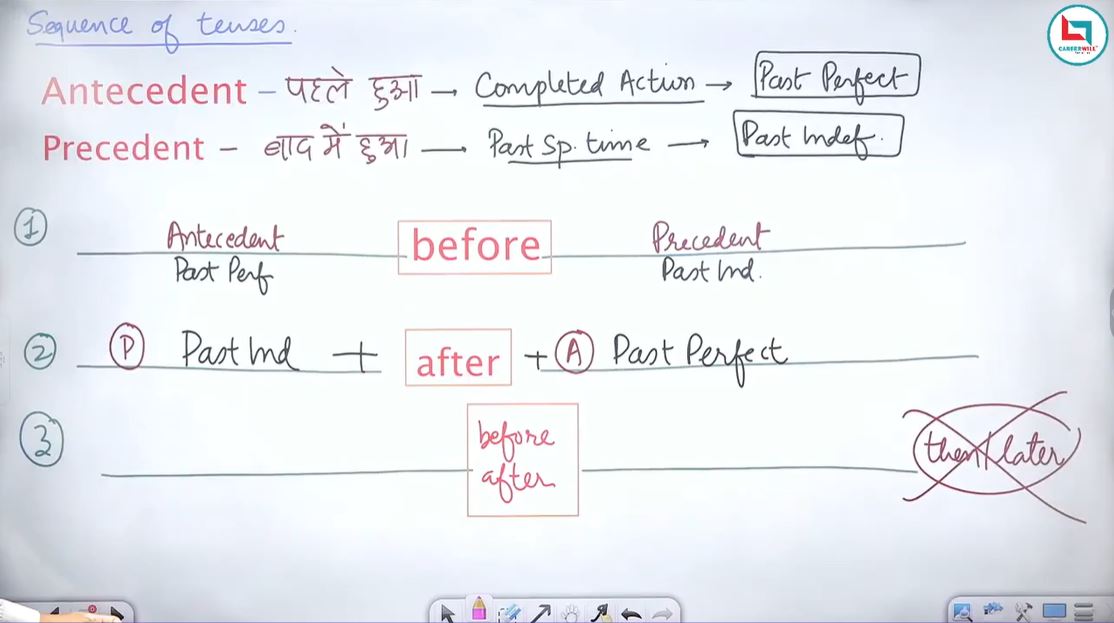 Sequence of tenses.
CAREERWILL
Antecedent – पहले हुआ → Completed Action → Past Perfect
Precedent – बाद में हुआ → Past Sp. time → Past Indef.
① Antecedent before Precedent
Past Perf Past Ind.
② Ⓟ Past Ind + after + Ⓐ Past Perfect
③ before
after
then/later